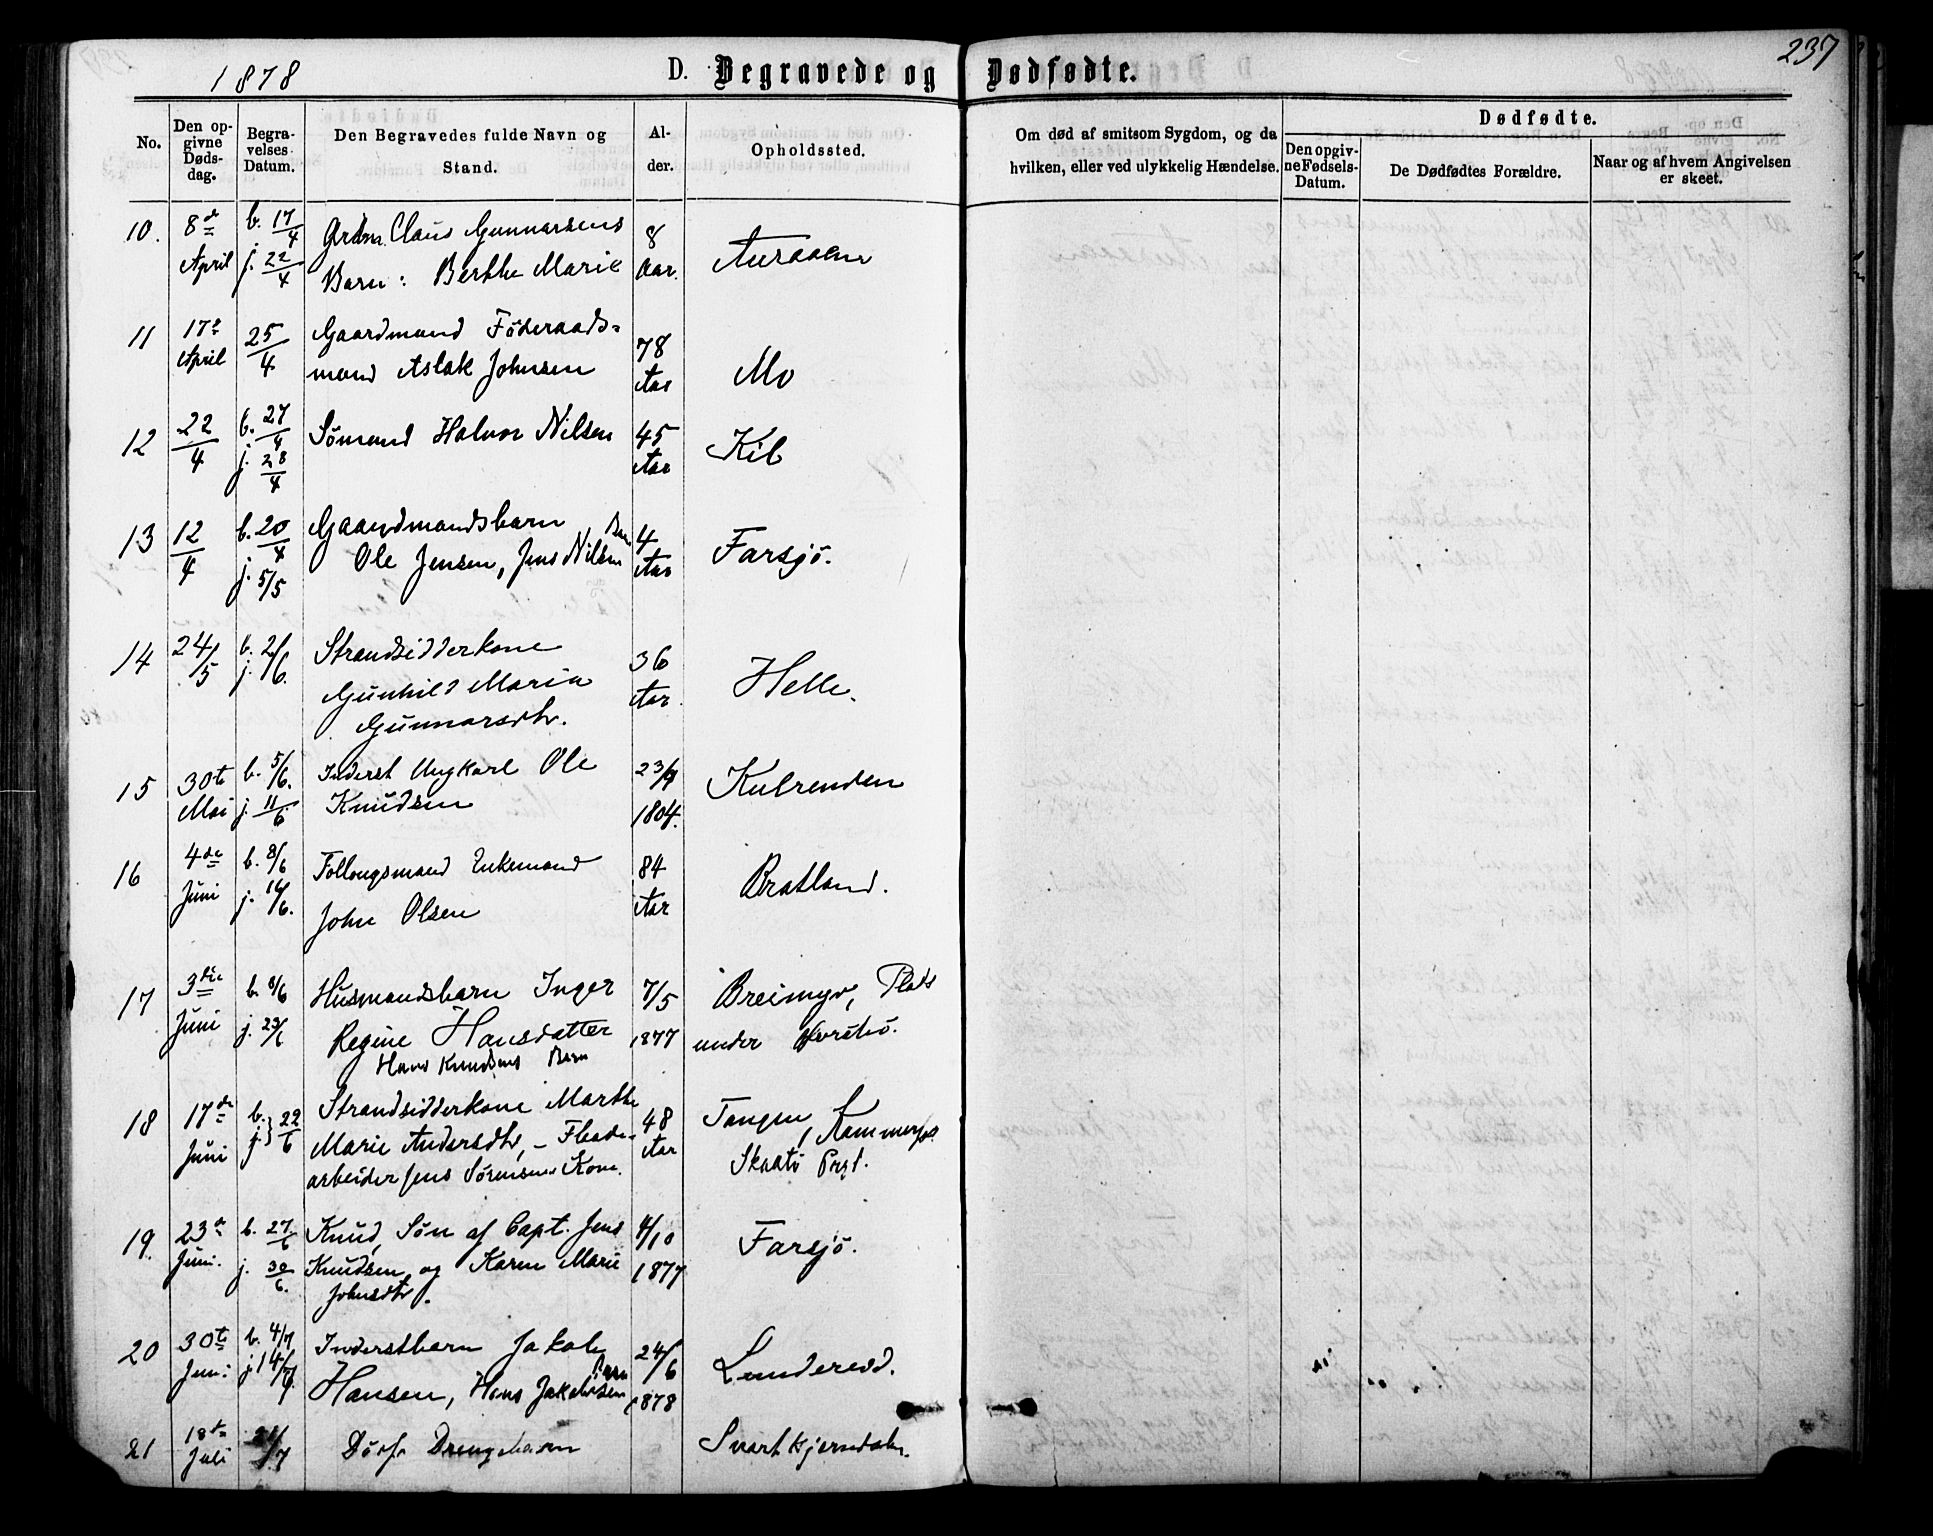 1878 D. Begravede og Dødfødte. 237
No.
Den opgivne Dødsdag.
Begravelses Datum.
Den Begravedes fulde Navn og Stand.
Alder.
Opholdssted.
Om død af smitsom Sygdom, og da hvilken, eller ved ulykkelig Hændelse.
Dødfødte.
Den opgivne Fødsels-Datum.
De Dødfødtes Forældre.
Naar og af hvem Angivelsen er skeet.
10. 8de b. 17/4 Grdm. Claus Gunnarsens 8
April j. 22/4 Barn: Berthe Marie Aar. Auraaen
11 17de 25/4 Gaardmand Föderaads-
April mand Aslak Johnsen 78 Aar Mo
12 22/4 b. 27/4 Sömand Halvor Nilsen 45 Kil
j. 28/4 Aar
13 12/4 b. 20/4 Gaardmandsbarn 4 Farsjö.
j. 5/5 Ole Jensen, Jens Nilsen Barn Aar
14 24/5 b. 2/6 Strandsidderkone 36
j. /6. Gunhild Maria Aar. Helle.
Gunnarsdtr.
15 30te b. 5/6. Inderst Ungkarl Ole 23/ Kurenden
Mai j. 11/6 Knudsen 1804.
16 4de b. 8/6 Follougsmand Enkemand 84 Bratland.
Juni j. 16/6. John Olsen Aar
17 3die b. 8/6 Husmandsbarn Inger 7/5 Breimyr, Plads
Juni j. 23/6 Regine Hansdatter 1877 under
Hans Knudsens Barn
18 17de b. j. } 22/6 Strandsidderkone Marthe 48 Tangen, Kammerfos
Juni Marie Andersdtr, – Aar Skaatö Prgf.
arbeider Jens Sörensens Kone.
19. 23de b. 27/6 Knud, Sön af Capt. Jens 4/10 Farsjö.
Juni. j. 30/6. Knudsen og Karen Marie 1877
Johnsdtr.
20 30te b. 4/7 Inderstbarn Jakob 24/6 Lundereid.
Juni j. 14/7 Hansen, Hans Jakobsen Barn 1878
21 18de 21/7 Dödf. Drengebarn Svartkjerndalen.
Juli